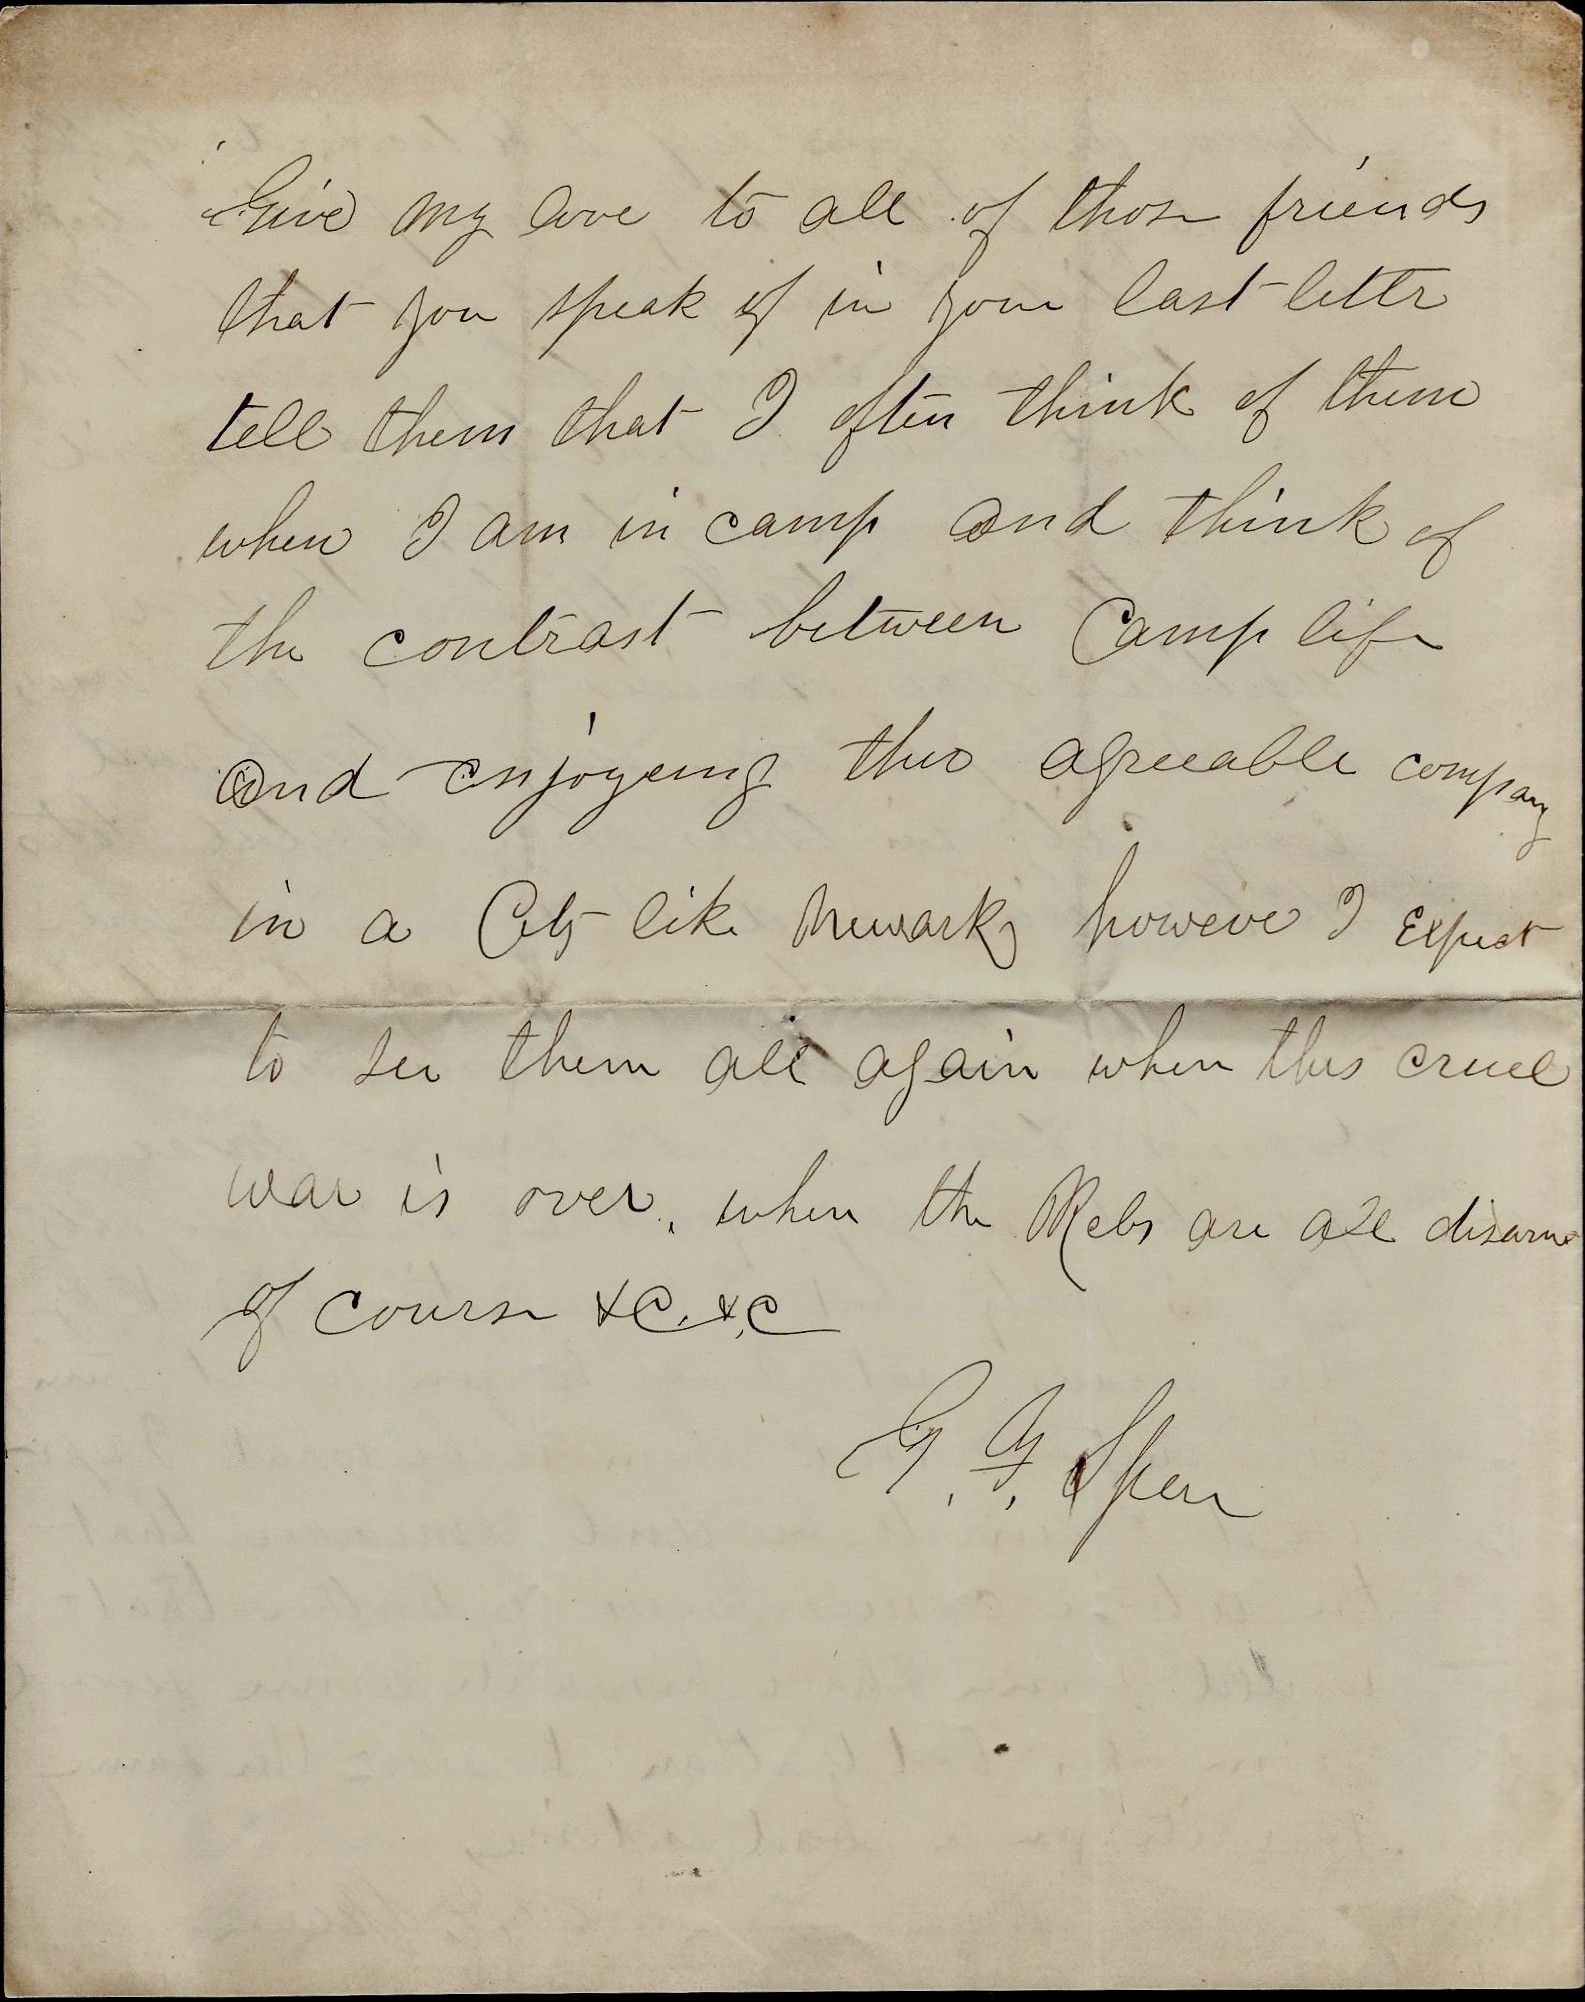 Give my love to all of those friends
that you speak of in your last letter
tell them that I often think of them
when I am in camp and think of
the contrast between Camp life
and enjoyeing the agreeable company
in a City like Newark however I Expect
to see them all again when this cruel
war is over, when the Rebs are all disarm
of course &C. &C
G. F. Speer